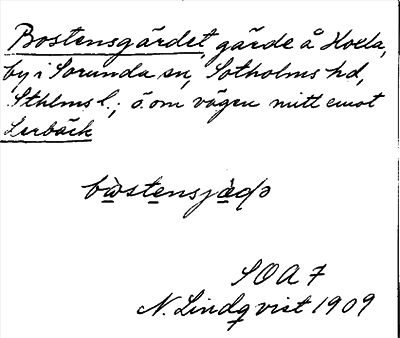 Bostensgärdet, gärde å Hoxla,
by i Sorunda sn, Sotholms hd,
Sthlms l.; ö. om vägen mitt emot
Lerbäck
SOA 7
N. Lindqvist 1909